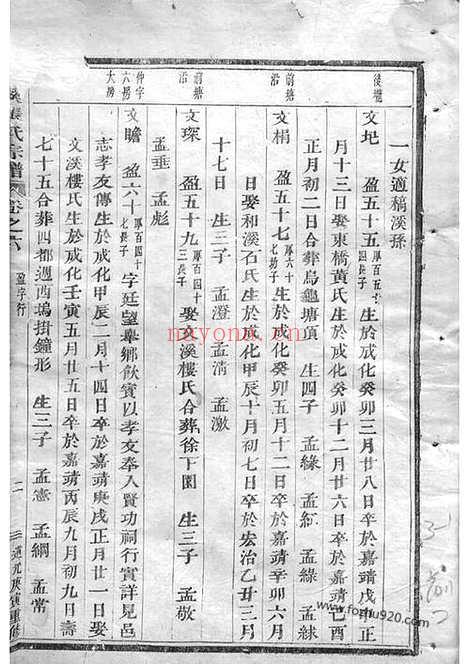 一女適槁溪孫
後壠
文圯 盈五十五 厚百五十 生於成化癸卯三月廿八日卒於嘉靖戊申正
月十三日娶東橋黃氏生於成化癸卯十二月廿六日卒於嘉靖己酉
正月初二日合葬烏龜塘頂 生四子 孟緣 孟紅 孟綠 孟絿
前塘
沿
文楫 盈五十七 厚六十七幼子 生於成化癸卯五月十二日卒於嘉靖辛卯六月
日娶和溪石氏生於成化甲辰十月初七日卒於宏治乙丑三月
十七日 生三子 孟澄 孟清 孟激
前塘
沿
文琛 盈五十九 厚百四十三長子 娶文溪樓氏合葬徐下園 生三子 孟敬
孟垂 孟彪
仲字
六房
大房
文瞻 盈六十 厚百四十七長子 字廷望舉鄉飲賓以孝友奉入賢功祠行實詳見邑
志孝友傳生於成化甲辰二月十四日卒於嘉靖庚戌正月廿一日娶
文溪樓氏生於成化壬寅五月廿五日卒於嘉靖丙辰九月初九日壽
七十五合葬四都週西塢掛鐘形 生三子 孟憲 孟綱 孟常
氏宗譜
卷之六
盈字行
二
重修
www.fozhu920.com
nayona.cn